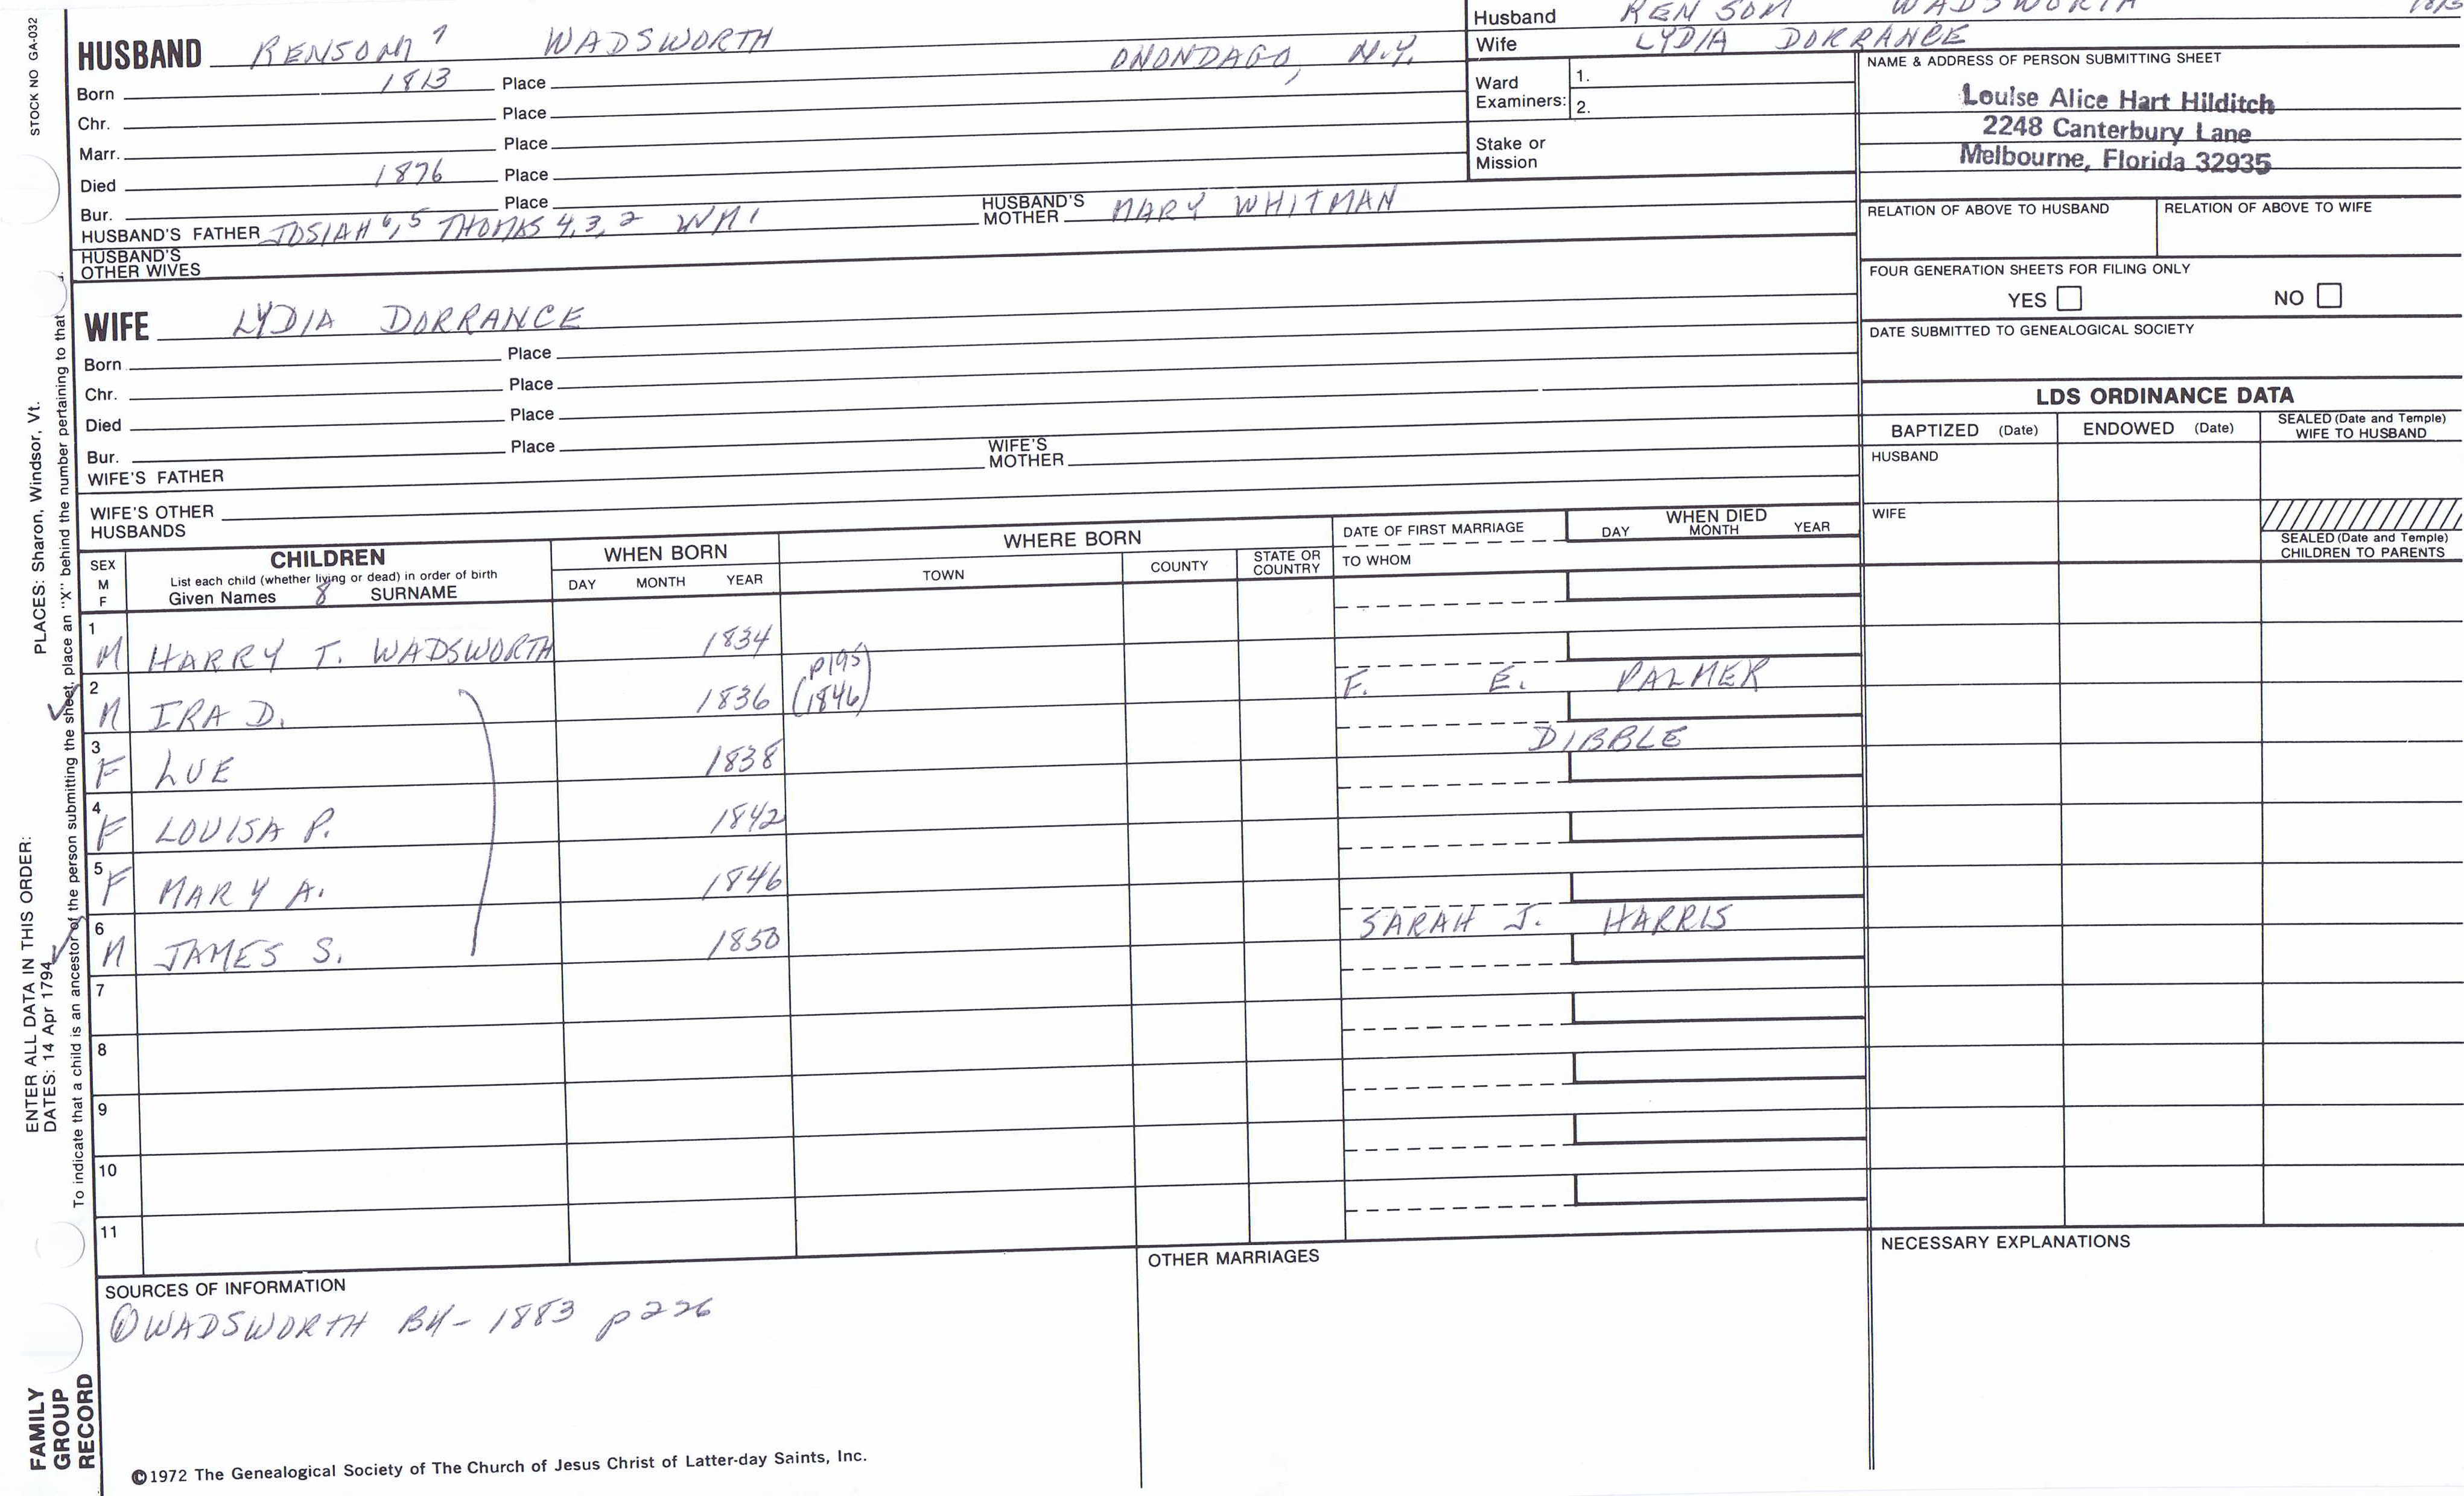 STOCK NO GA-032
HUSBAND RENSOM 7 WADSWORTH
Born 1813 Place ONONDAGO, N.Y.
Chr. Place
Marr. Place
Died 1876 Place
Bur. Place
HUSBAND'S FATHER JOSIAH 6,5 THOMAS 4,3,2 WM 1 HUSBAND'S MOTHER MARY WHITMAN
HUSBAND'S OTHER WIVES
Husband RENSOM WADSWORTH 1813
Wife LYDIA DORRANCE
Ward Examiners: 1.
2.
Stake or Mission
NAME & ADDRESS OF PERSON SUBMITTING SHEET
Louise Alice Hart Hilditch
2248 Canterbury Lane
Melbourne, Florida 32935
RELATION OF ABOVE TO HUSBAND RELATION OF ABOVE TO WIFE
FOUR GENERATION SHEETS FOR FILING ONLY
YES NO
DATE SUBMITTED TO GENEALOGICAL SOCIETY
WIFE LYDIA DORRANCE
Born Place
Chr. Place
Died Place
Bur. Place
WIFE'S FATHER WIFE'S MOTHER
WIFE'S OTHER HUSBANDS
LDS ORDINANCE DATA
BAPTIZED (Date) ENDOWED (Date) SEALED (Date and Temple) WIFE TO HUSBAND
HUSBAND
WIFE
SEALED (Date and Temple) CHILDREN TO PARENTS
SEX M F
CHILDREN
List each child (whether living or dead) in order of birth
Given Names 8 SURNAME
WHEN BORN
DAY MONTH YEAR
WHERE BORN
TOWN COUNTY STATE OR COUNTRY
DATE OF FIRST MARRIAGE
TO WHOM
WHEN DIED
DAY MONTH YEAR
1 M HARRY T. WADSWORTH 1834
2 M IRA D. 1836 p195 (1846) F. E. PALMER
3 F LUE 1838 DIBBLE
4 F LOUISA P. 1842
5 F MARY A. 1846
6 M JAMES S. 1850 SARAH J. HARRIS
7
8
9
10
11
SOURCES OF INFORMATION
① WADSWORTH BK - 1883 p 226
OTHER MARRIAGES
NECESSARY EXPLANATIONS
©1972 The Genealogical Society of The Church of Jesus Christ of Latter-day Saints, Inc.
ENTER ALL DATA IN THIS ORDER:
DATES: 14 Apr 1794
PLACES: Sharon, Windsor, Vt.
To indicate that a child is an ancestor of the person submitting the sheet, place an "X" behind the number pertaining to that
FAMILY
GROUP
RECORD